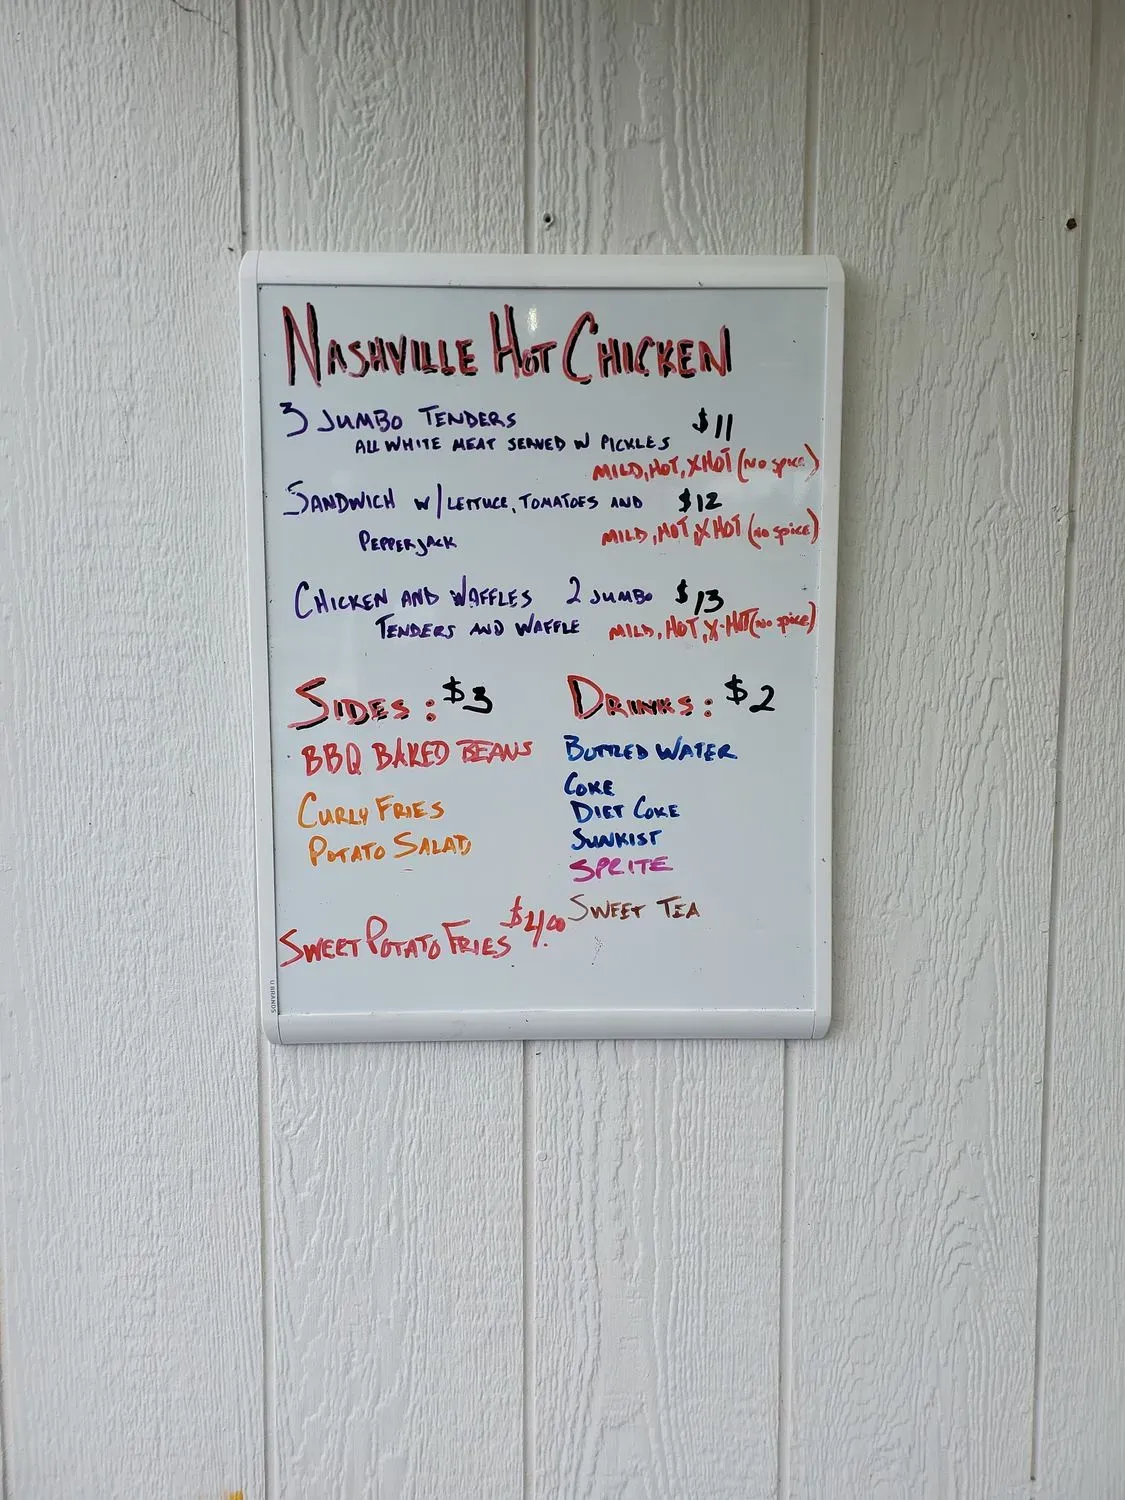 NASHVILLE HOT CHICKEN
3 JUMBO TENDERS $11
ALL WHITE MEAT SERVED W PICKLES
MILD, HOT, XHOT (No spice)
SANDWICH W/ LETTUCE, TOMATOES AND $12
PEPPERJACK MILD, HOT, XHOT (no spice)
CHICKEN AND WAFFLES 2 JUMBO $13
TENDERS AND WAFFLE MILD, HOT, X-HOT (no spice)
SIDES: $3
BBQ BAKED BEANS
CURLY FRIES
POTATO SALAD
SWEET POTATO FRIES $4.00
DRINKS: $2
BOTTLED WATER
COKE
DIET COKE
SUNKIST
SPRITE
SWEET TEA
U BRANDS